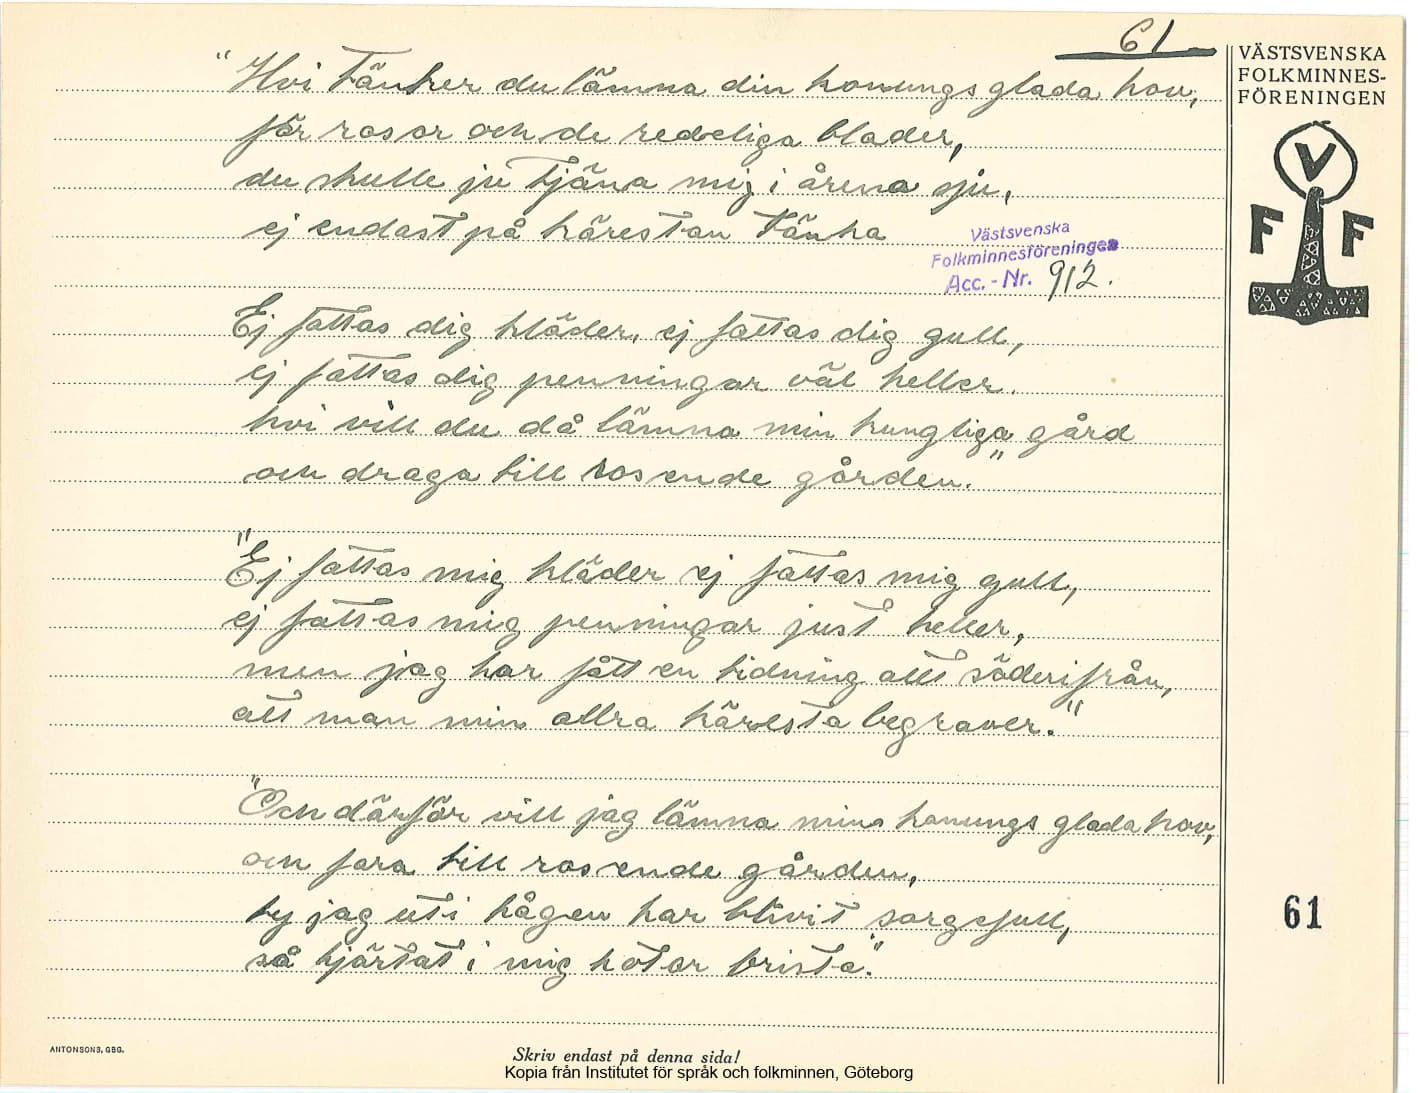 61
VÄSTSVENSKA
FOLKMINNES-
FÖRENINGEN
V
F F
"Hvi tänker du lämna din konungs glada hov,
för rosor och de redeliga blader,
du skulle ju tjäna mig i årena sju,
ej endast på kärestan tänka
Västsvenska
Folkminnesföreningen
Acc.-Nr. 912.
Ej fattas dig kläder, ej fattas dig gull,
ej fattas dig penningar väl heller.
hvi vill du då lämna min kungliga gård
och draga till rosende gården."
"Ej fattas mig kläder ej fattas mig gull,
ej fattas mig penningar just heller,
men jag har fått en tidning allt söderifrån,
att man min allra käresta begraver."
"Och därför vill jag lämna min konungs glada hov,
och fara till rosende gården,
ty jag uti hågen har blivit sorgefull,
så hjärtat i mig hotar brista."
61
ANTONSONS, GBG.
Skriv endast på denna sida!
Kopia från Institutet för språk och folkminnen, Göteborg